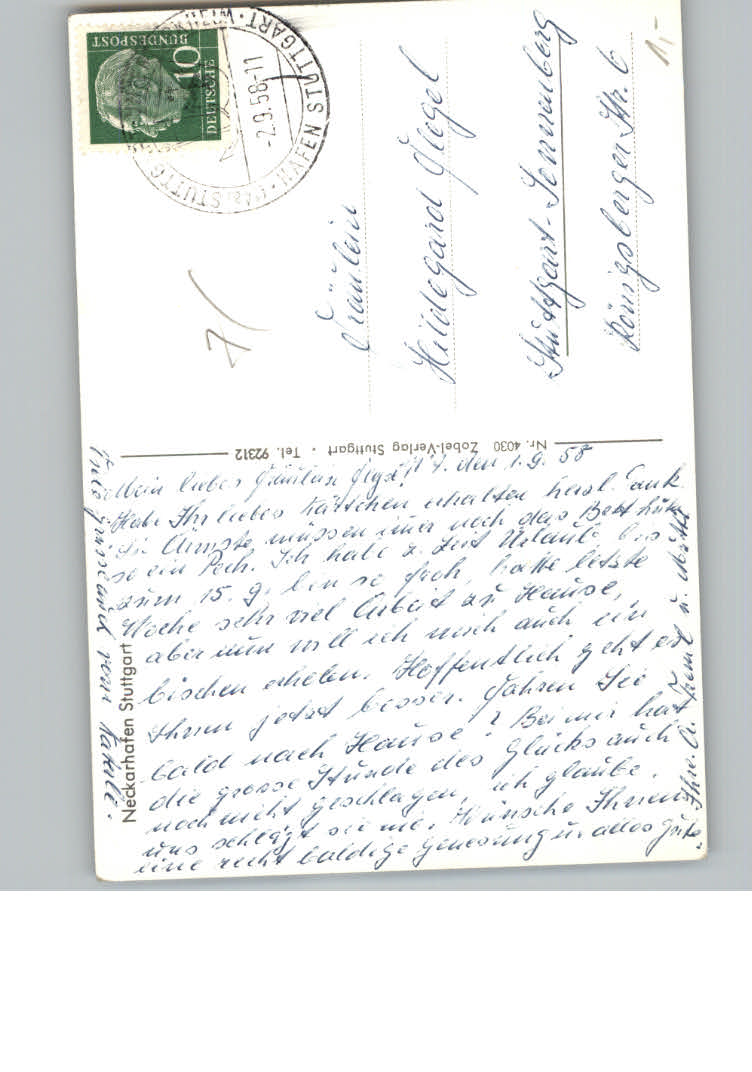 DEUTSCHE
BUNDESPOST
10
HAFEN STUTTGART
-2.9.58-11
1,-
7/
Fräulein
Hildegard Siegel
Stuttgart-Sonnenberg
Königsberger Str. 6
Nr. 4030 Zobel-Verlag Stuttgart · Tel. 92312
Neckarhafen Stuttgart
den 1.9.58
Mein liebes Fräulein
Habe Ihr liebes Kärtchen erhalten herzl. Dank
Sie Ärmste müssen immer noch das Bett hüten
so ein Pech. Ich habe z. Zeit Urlaub bis
zum 15. 9. bin so froh, hatte letzte
Woche sehr viel Arbeit zu Hause,
aber nun will ich mich auch ein
bischen erholen. Hoffentlich geht es
Ihnen jetzt besser. Fahren Sie
bald nach Hause? Bei mir hat
die grosse Stunde des Glücks auch
noch nicht geschlagen, ich glaube,
uns schlägt sie nie. Wünsche Ihnen
eine recht baldige Genesung u. alles Gute.
Ihre A. u. Mutter
vom